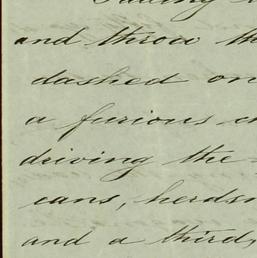 and throw th
dashed on
a furious c
driving the
cans, herds
and a third,